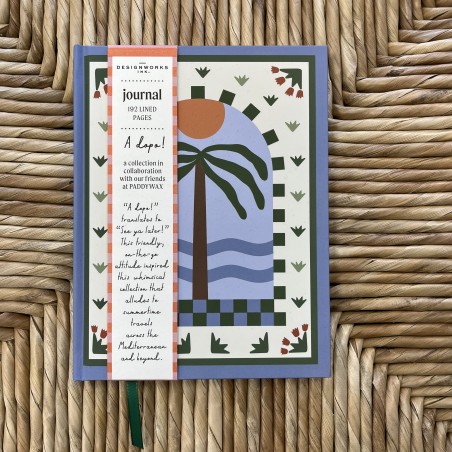 DESIGNWORKS
INK
journal
192 LINED
PAGES
A dopo!
a collection in
collaboration
with our friends
at PADDYWAX
"A dopo!"
translates to
"See ya later!"
This friendly,
on-the-go
attitude inspired
this whimsical
collection that
alludes to
summertime
travels
across the
Mediterranean
and beyond.